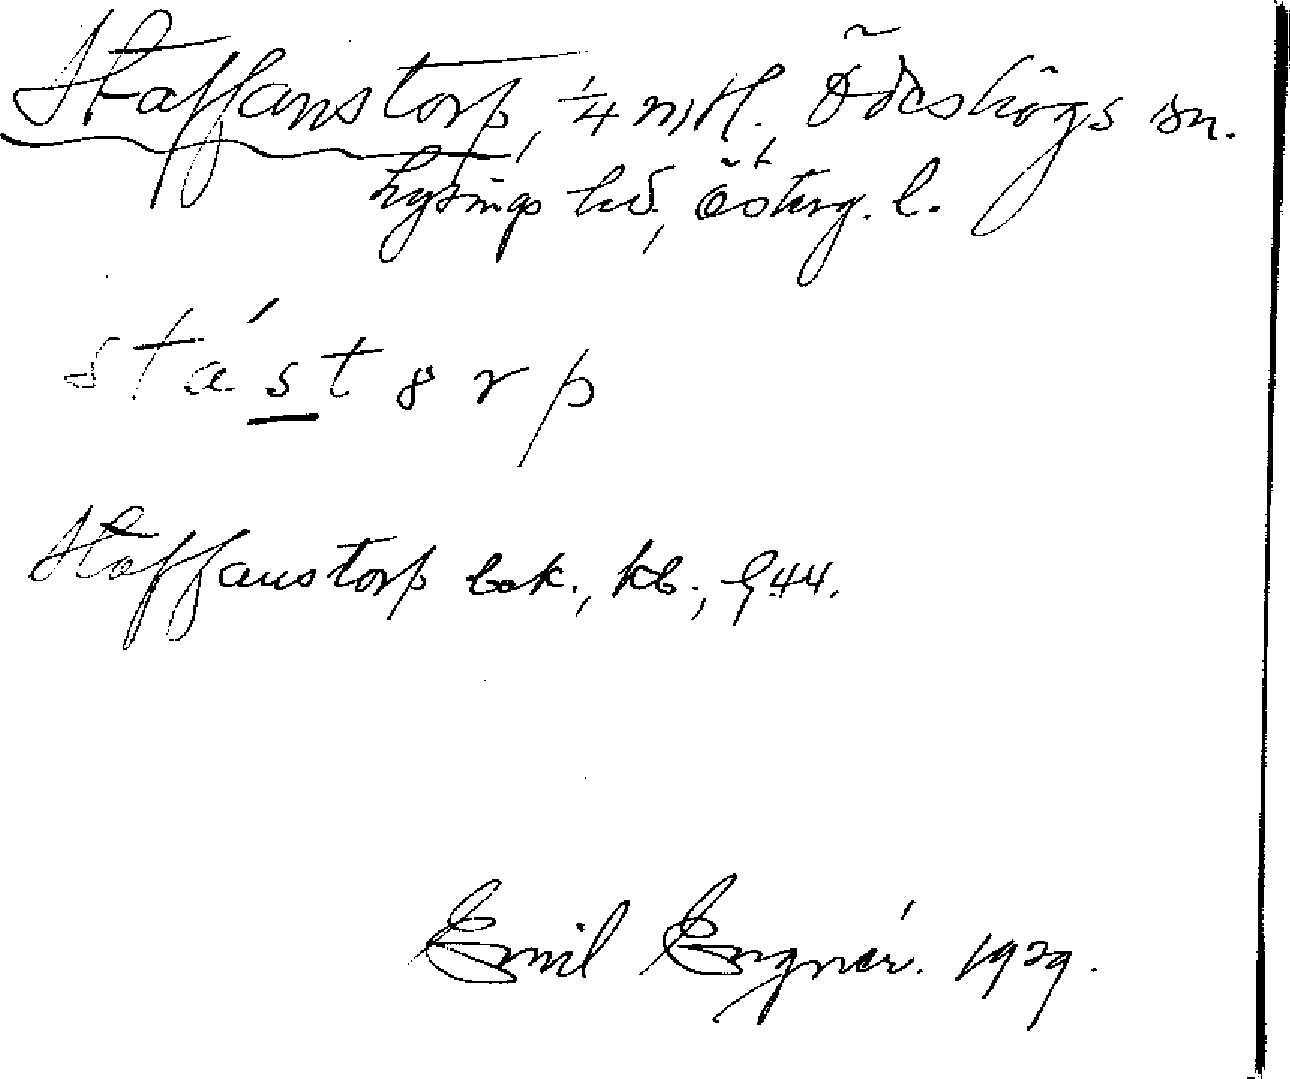 Staffanstorp, 1/4 mtl. Ödeshögs sn.
Lysings hd, Österg. l.
stás̲torp
Staffanstorp bok., kb., 944.
Emil Engnér. 1929.